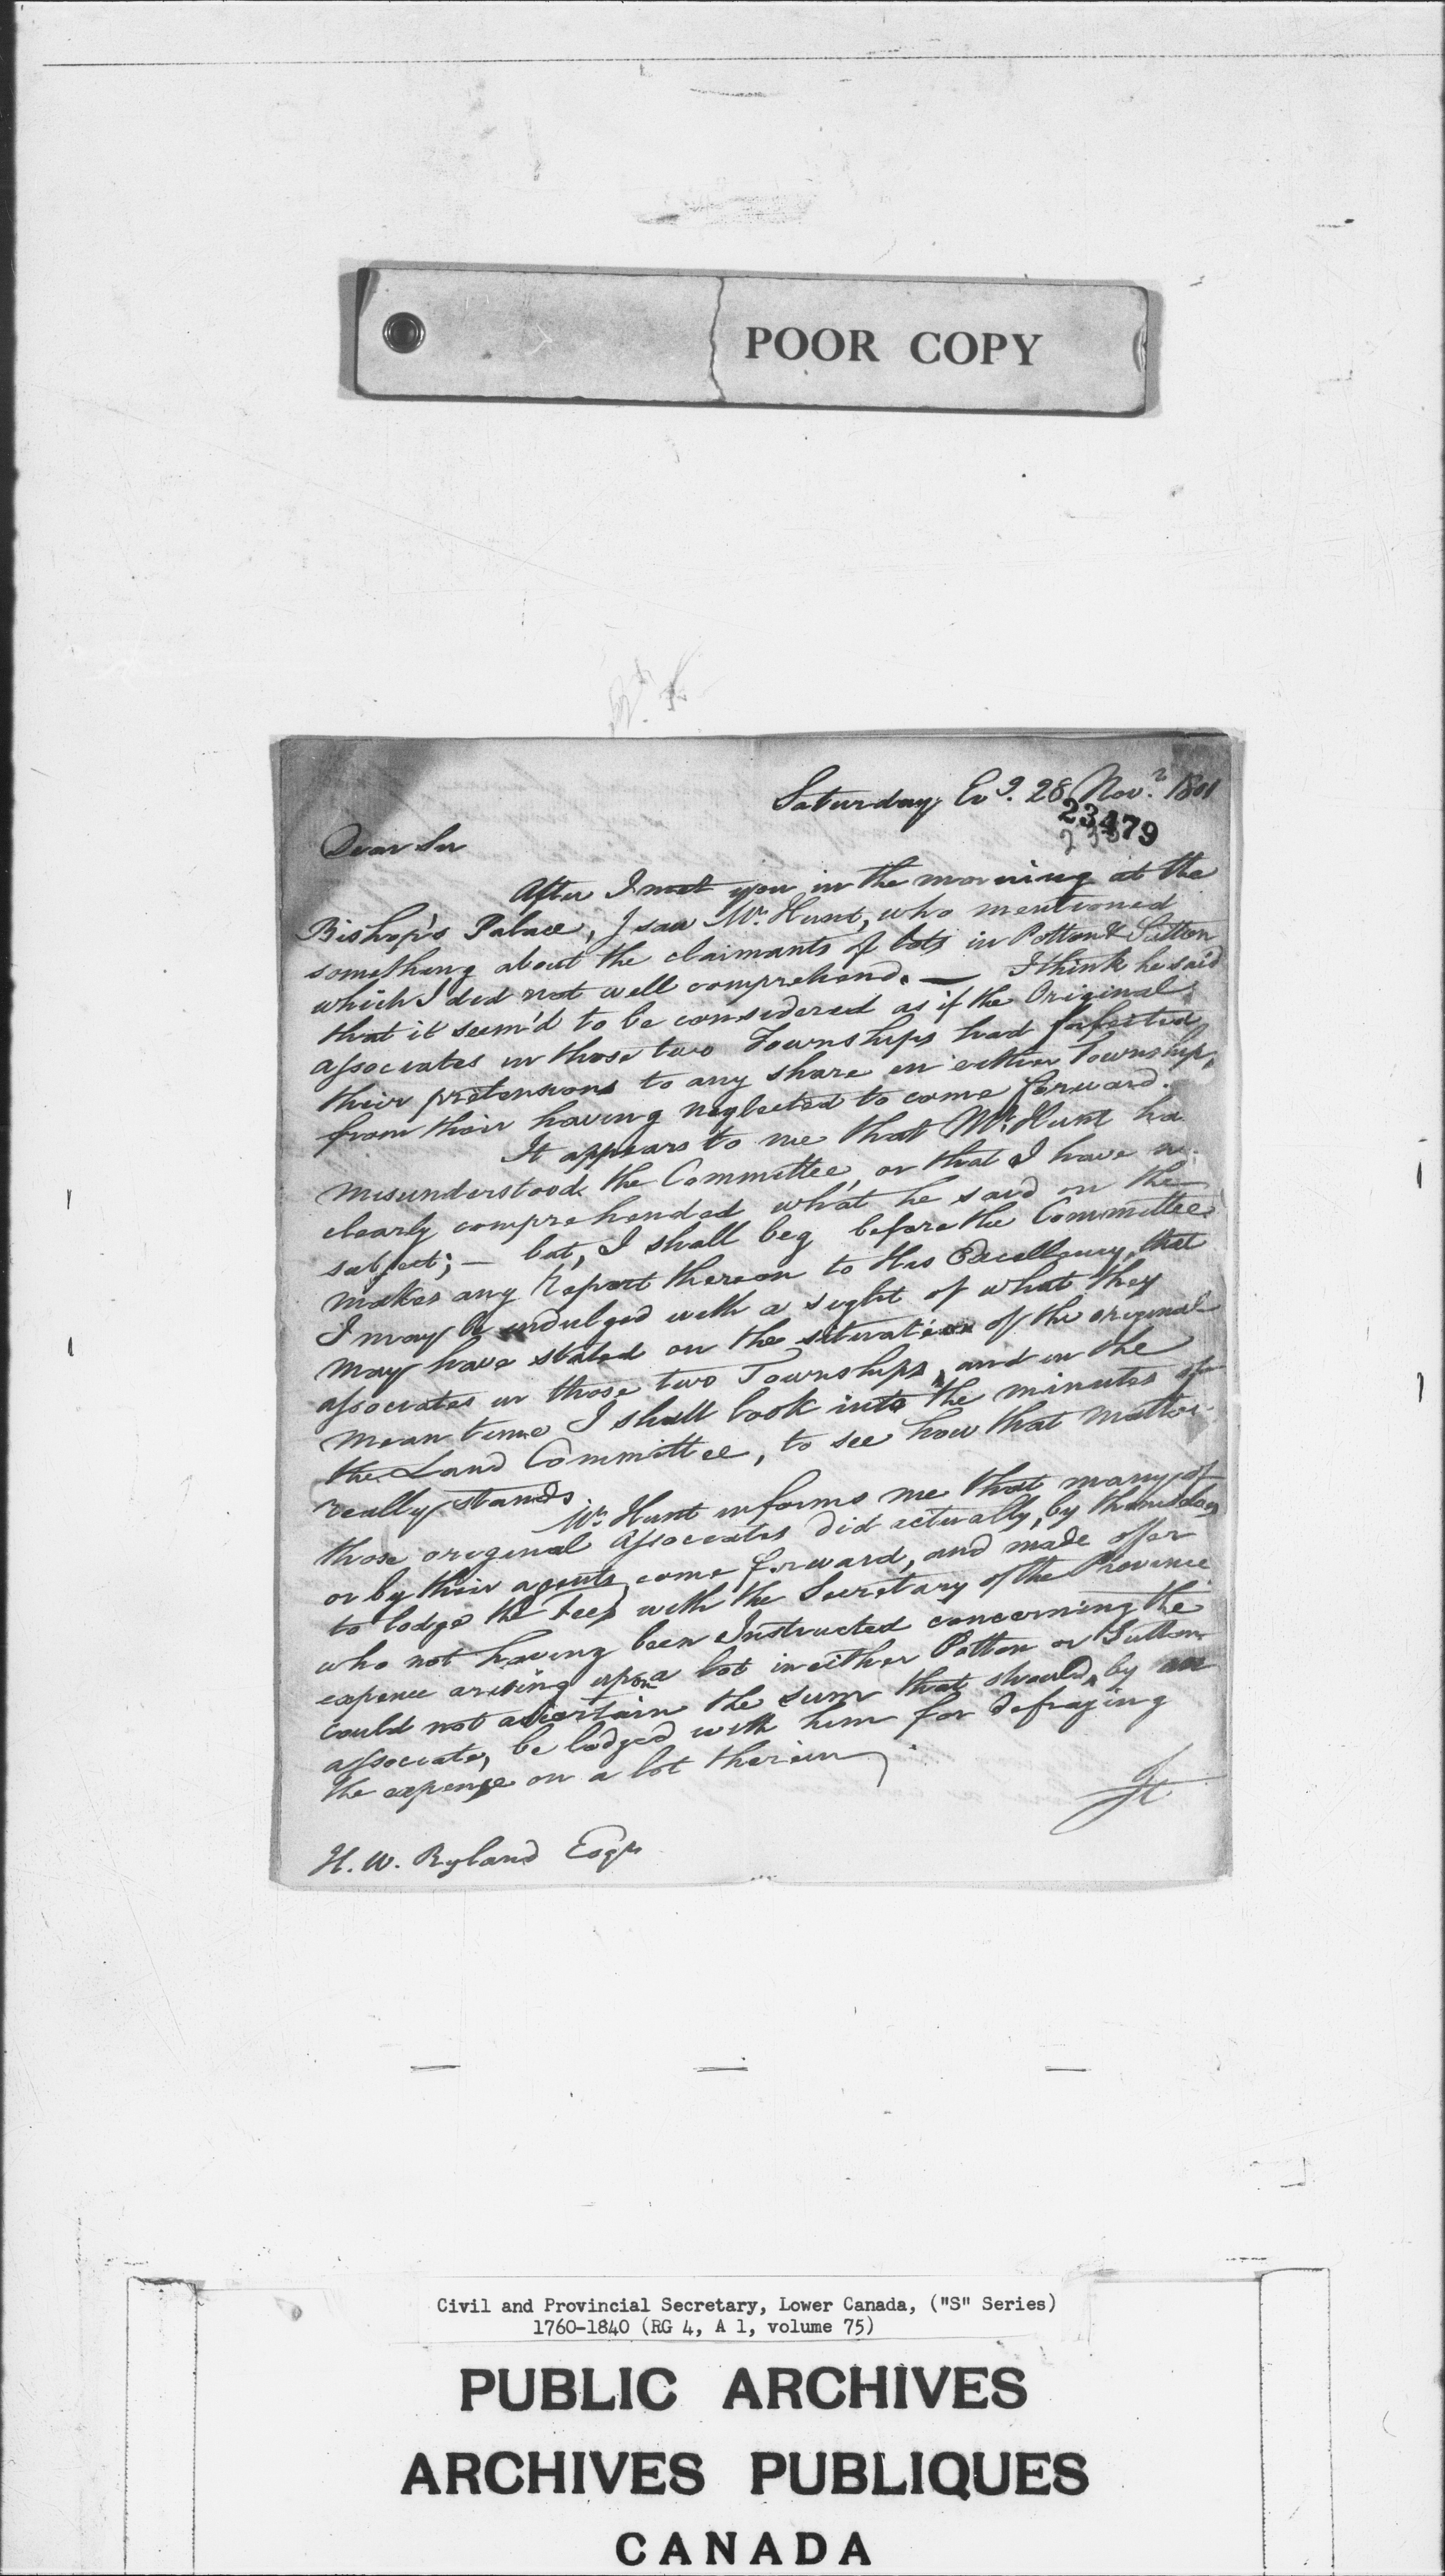 POOR COPY
Saturday Evg. 28 Novr. 1801
23479
Dear Sir
After I met you in the morning at the
Bishop's Palace, I saw Mr. Hunt, who mentioned
something about the claimants of lots in Potton & Sutton
which I did not well comprehend. — I think he said
that it seem'd to be considered as if the Original
associates in those two Townships had forfeited
their pretensions to any share in either Township,
from their having neglected to come forward.
It appears to me that Mr. Hunt ha
misunderstood the Committee, or that I have n
clearly comprehended what he said on the
subject; — but, I shall beg before the Committee
makes any Report thereon to His Excellency, that
I may be indulged with a sight of what they
may have stated on the situation of the original
associates in those two Townships, and in the
mean time I shall look into the minutes of
the Land Committee, to see how that matter
really stands
Mr. Hunt informs me that many of
those original Associates did actually, by themselves
or by their agents, come forward, and made offer
to lodge the Fees with the Secretary of the Province
who not having been Instructed concerning the
expence arising upon a lot in either Potton or Sutton
could not ascertain the sum that should, by an
associate, be lodged with him for defraying
the expense on a lot therein
H. W. Ryland Esqr
Civil and Provincial Secretary, Lower Canada, ("S" Series)
1760-1840 (RG 4, A 1, volume 75)
PUBLIC ARCHIVES
ARCHIVES PUBLIQUES
CANADA